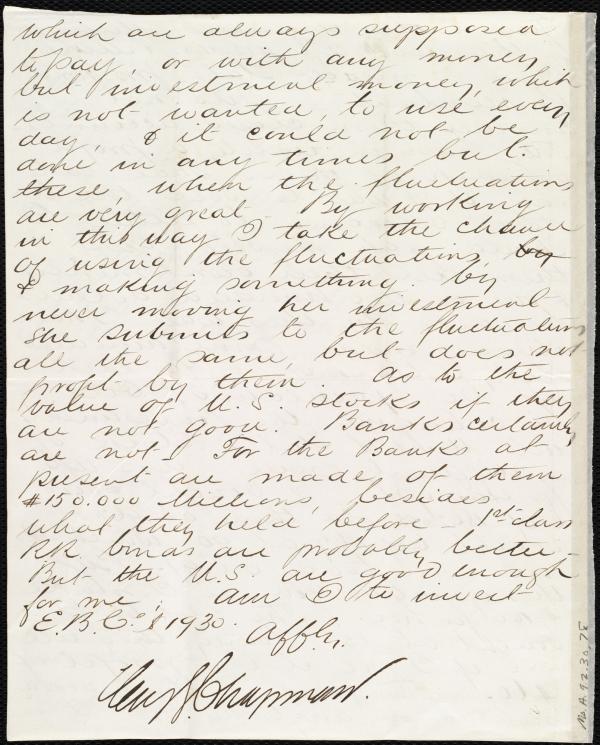 which are always supposed
to pay, or with any money
but investment money, which
is not wanted, to use every
day, & it could not be
done in any times but
these when the fluctuations
are very great. By working
in this way I take the chance
of using the fluctuations, by
& making something. by
never moving her investment
She submits to the fluctuations
all the same, but does not
profit by them. As to the
value of U.S. stocks if they
are not good. Banks certainly
are not. For the Banks at
present are made of them
$150.000 Millions, besides
what they held before - 1st class
RR bonds are probably better -
But the U.S. are good enough
for me, am I to invest
E.B.C's $1930.
Affly,
Henry G. Chapman.
Ms.A.9.2.30,75